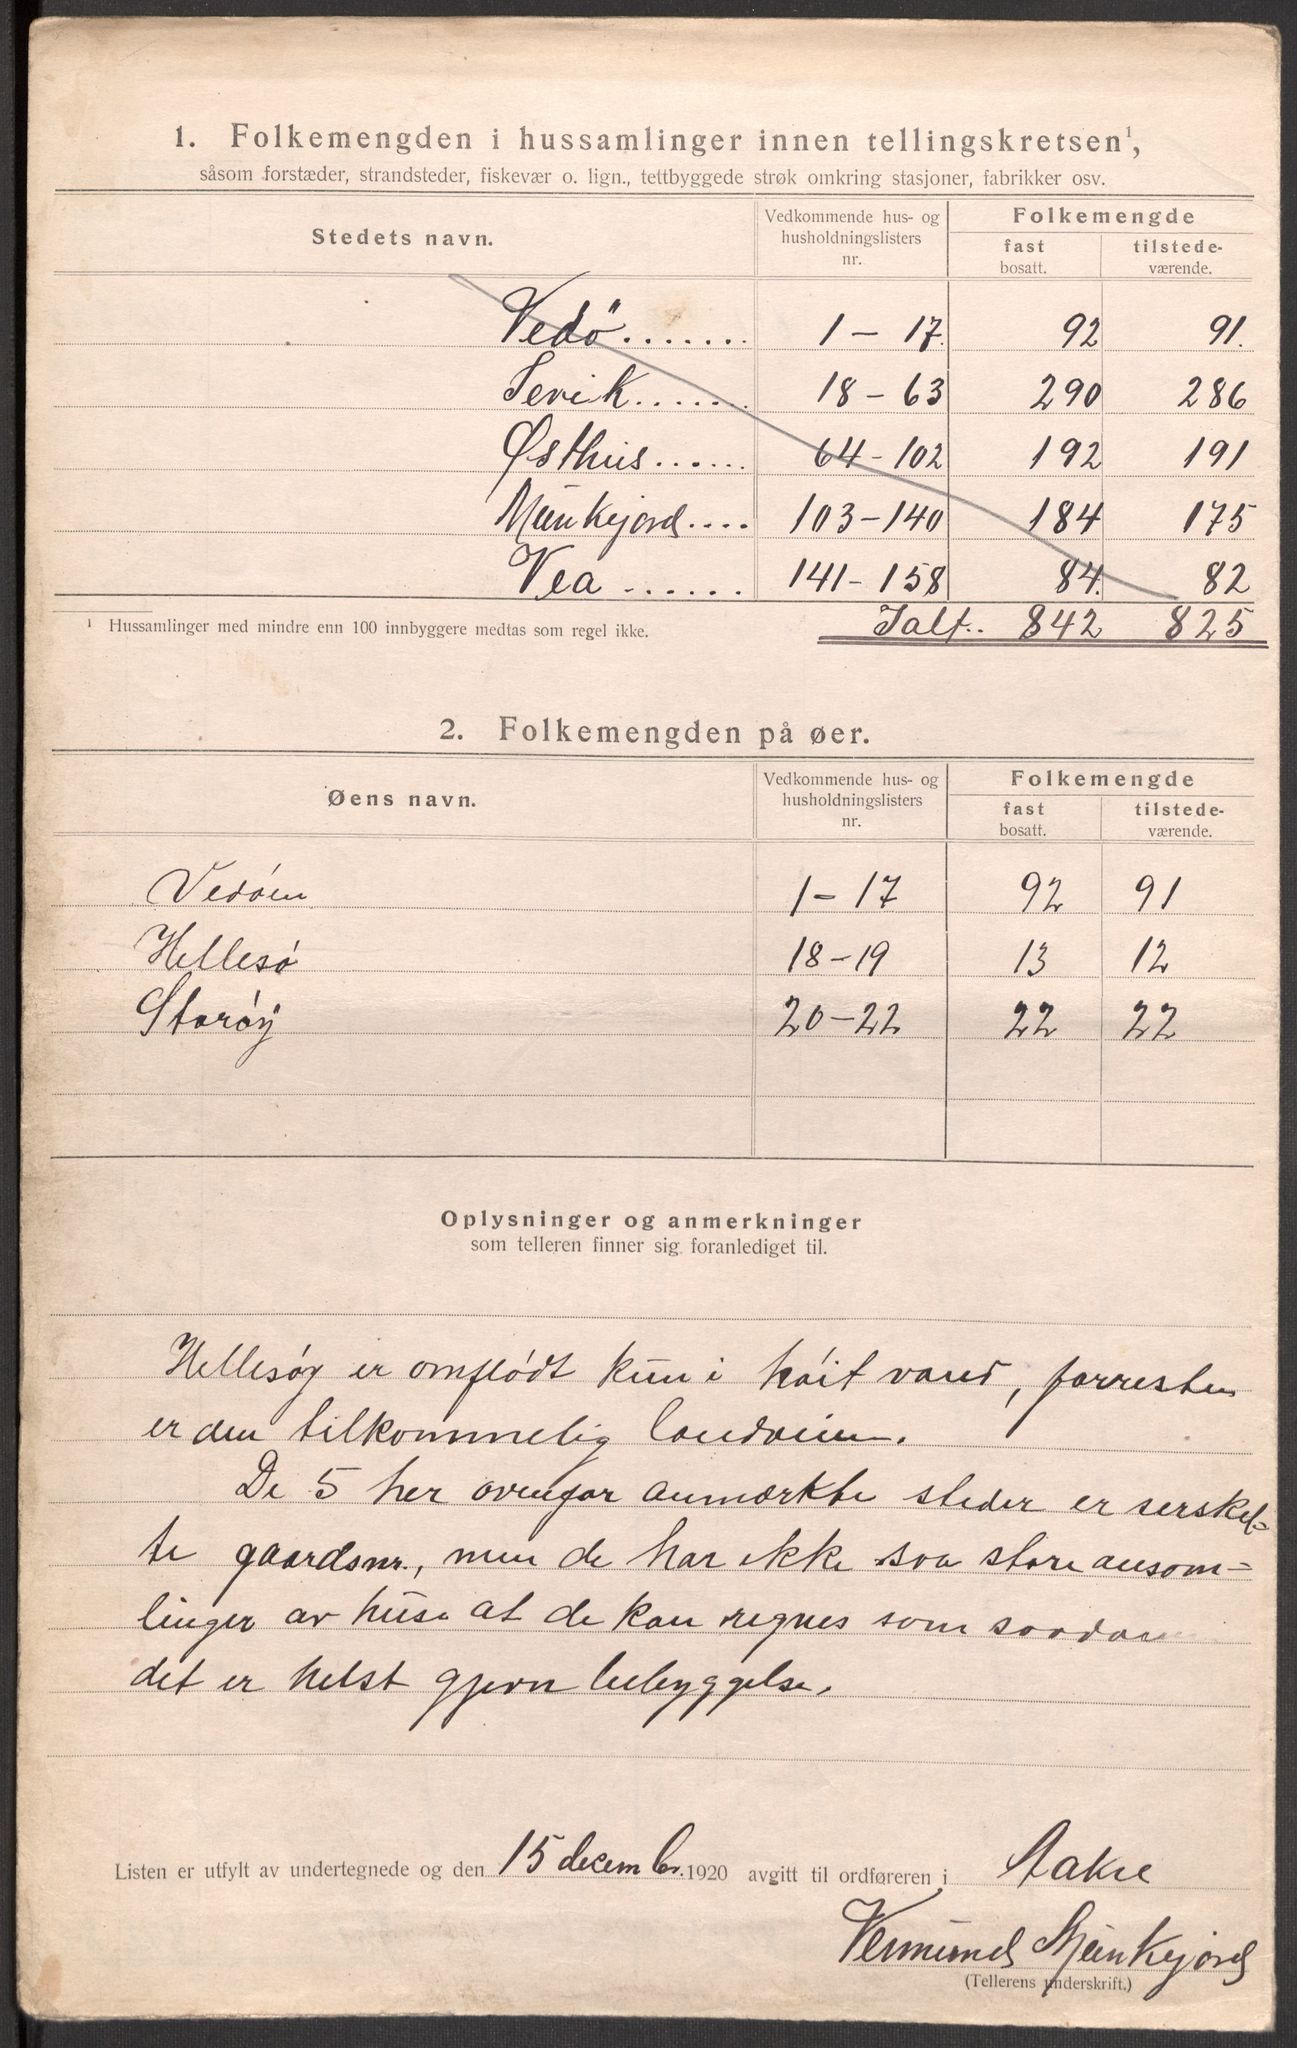 1. Folkemengden i hussamlinger innen tellingskretsen¹,
såsom forstæder, strandsteder, fiskevær o. lign., tettbyggede strøk omkring stasjoner, fabrikker osv.
Stedets navn. Vedkommende hus- og husholdningslisters nr. Folkemengde fast bosatt. tilstede-værende.
Vedö....... 1 – 17. 92 91.
Sevik....... 18 – 63 290 286
Østhus...... 64 - 102 192 191
Munkejord.... 103 – 140 184 175
Vea ...... 141 - 158 84. 82
¹ Hussamlinger med mindre enn 100 innbyggere medtas som regel ikke.
Ialt.. 842 825
2. Folkemengden på øer.
Øens navn. Vedkommende hus- og husholdningslisters nr. Folkemengde fast bosatt. tilstede-værende.
Vedøen 1 – 17 92 91
Hellesø 18 – 19 13 12
Storøy 20 – 22 22 22
Oplysninger og anmerkninger
som telleren finner sig foranlediget til.
Hellesøy er omflødt kun i høit vand, forresten
er den tilkommelig landveien.
De 5 her ovenfor anmærkte steder er serskel-
te gaardsnr., men de har ikke saa store ansam-
linger av huse at de kan regnes som
det er helst gjevn bebyggelse.
Listen er utfylt av undertegnede og den 15 decembr. 1920 avgitt til ordføreren i Aakre
Vermund Munkejord
(Tellerens underskrift.)